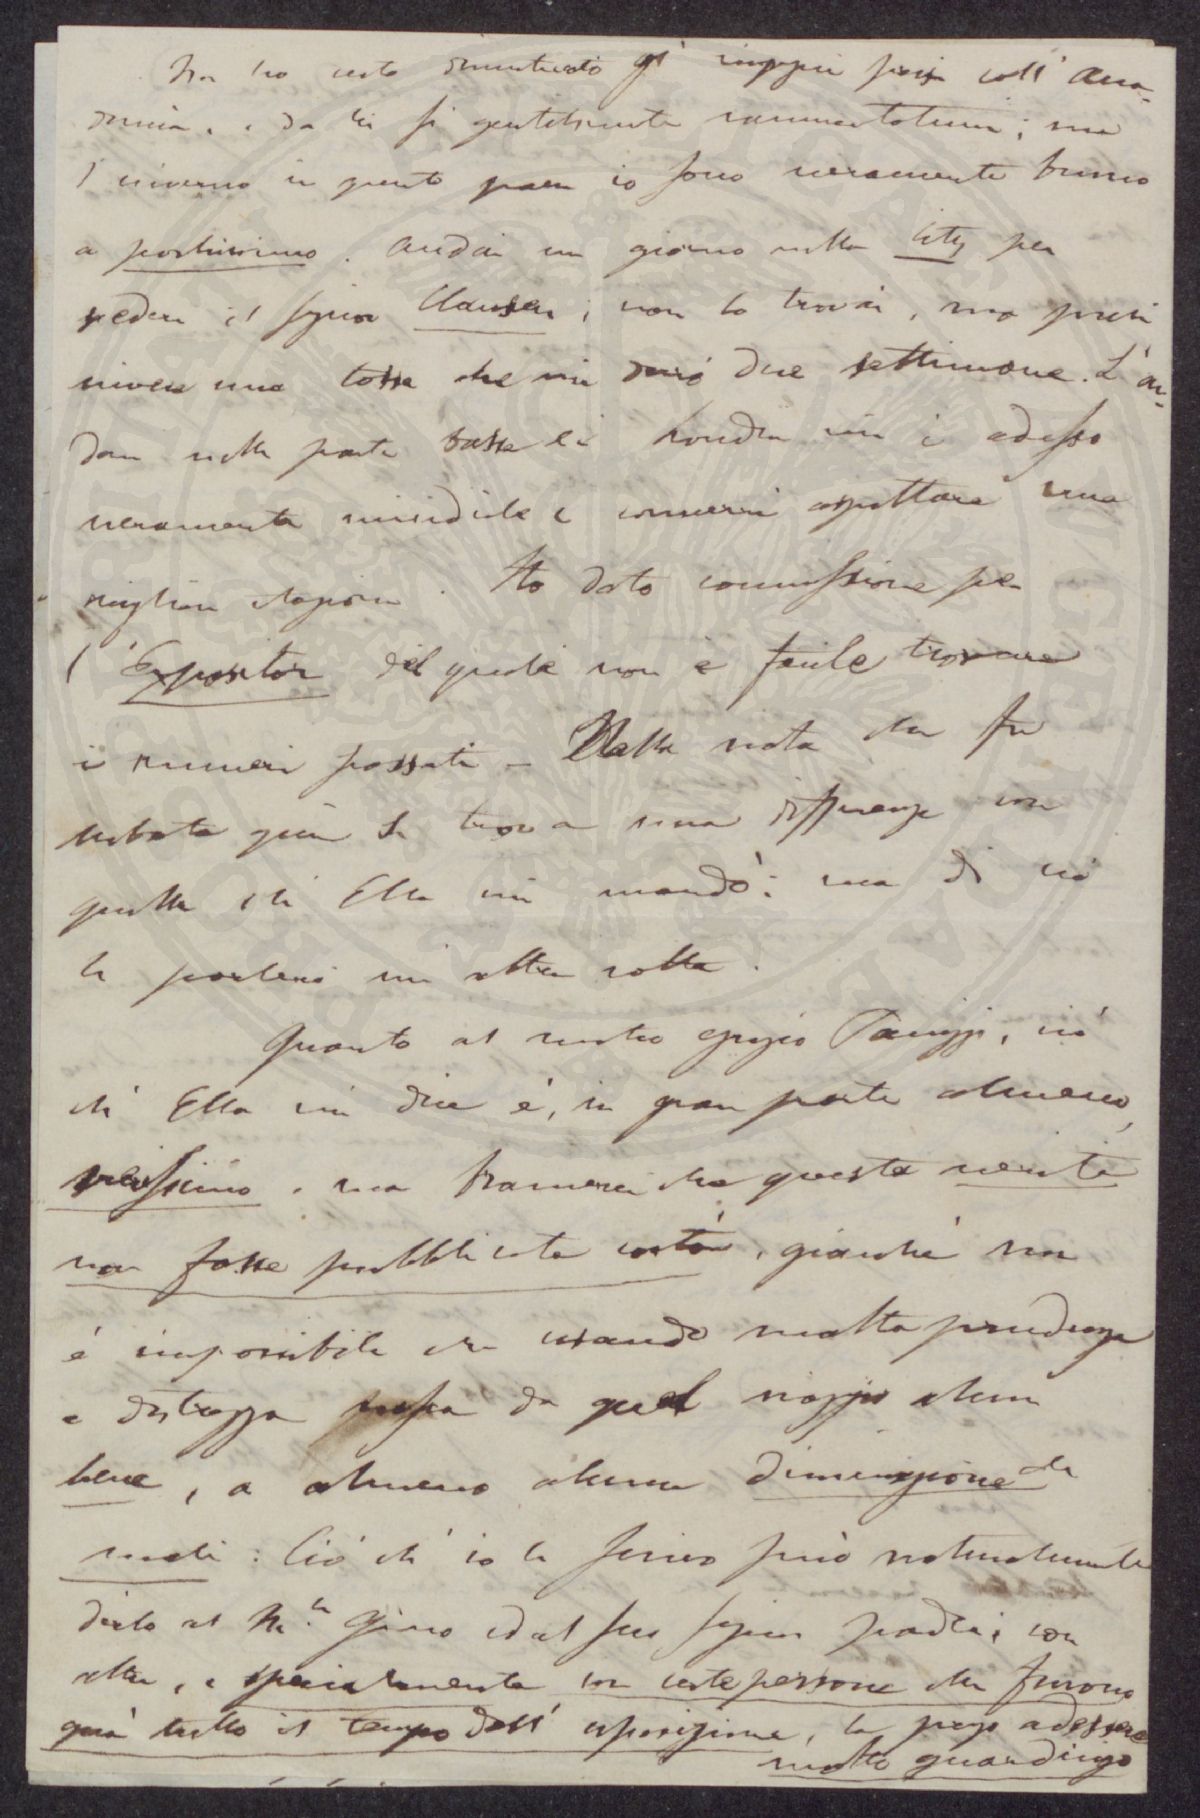 Non ho certo dimenticato gl' impegni presi coll' Acca-
demia, e da lei sì gentilmente rammentatimi; ma
l' inverno in questo paese io sono veramente buono
a pochissimo. Andai un giorno nella City per
vedere il signor Clausen; non lo trovai, ma presi
invece una tosse che mi durò due settimane. L' an-
dare nella parte bassa di Londra mi è adesso
veramente micidiale e converrà aspettare una
miglior stagione. Ho dato commissione per
l' Expositor del quale non è facile trovare
i numeri passati – Nella nota che fu
qui si trova una differenza con
quella che Ella mi mandò: ma di ciò
le parlerò un' altra volta.
Quanto al nostro egregio Panizzi, ciò
ch' Ella mi dice è, in gran parte almeno,
verissimo, ma bramerei che questa verità
non fosse pubblicata costà, giacché non
è impossibile che usando molta prudenza
e destrezza possa da quel viaggio alcun
bene, o almeno alcuna diminuzione di
mali: Ciò ch' io le scrivo può naturalmente
dirlo al Gino ed al suo signor padre; con
altri, e specialmente con certe persone che furono
quà tutto il tempo dell' esposizione, la prego ad essere
molto guardingo